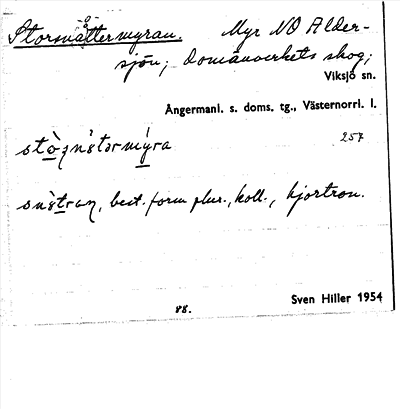 Storsnåttermyran. Myr NO Alder-
sjön; domänverkets skog;
Viksjö sn.
Ångermanl. s. doms. tg., Västernorrl. l.
257
best. form plur., koll., hjortron.
88.
Sven Hiller 1954